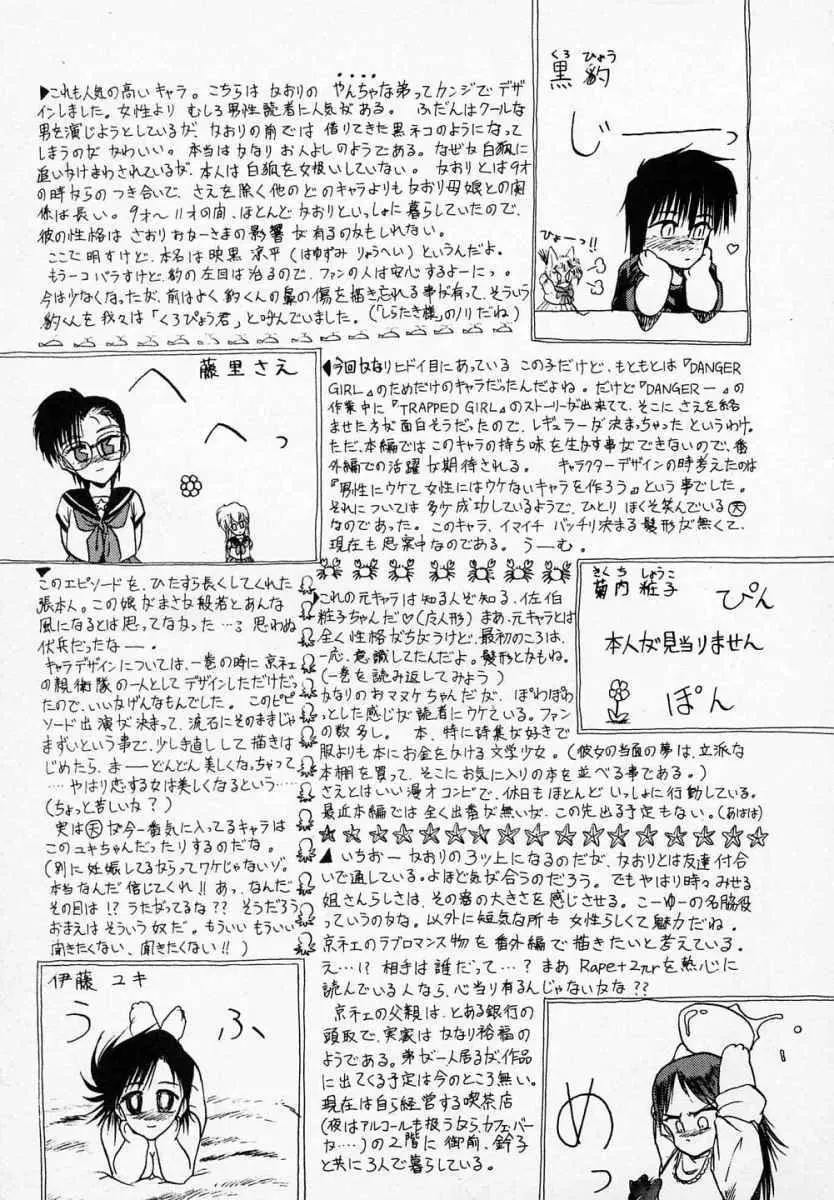 くろ ひょう
黒 豹
じーーっ
ひょーっ!!
▶これも人気の高いキャラ。こちらは なおりの やんちゃな弟ってカンジでデザ
インしました。女性より むしろ男性読者に人気がある。 ふだんはクールな
男を演じようとしているが、なおりの前では 借りてきた黒ネコのようになって
しまうのが かわいい。本当は かなり お人よしのようである。なぜか白狐に
追いかけまわされているが、本人は白狐を女扱いしていない。 なおりとは9才
の時からのつき合いで、さえを除く他のどのキャラよりも なおり母娘との関
係は長い。9才〜11才の間、ほとんど なおりといっしょに暮らしていたので、
彼の性格は さおりおかーさまの影響が有るのかもしれない。
ここで明すけど、本名は映黒 涼平(はゆずみ りょうへい)というんだよ。
もう一コ バラすけど、豹の左目は治るので、ファンの人は安心するよーにっ。
今は少なくなったが、前はよく豹くんの鼻の傷を描き忘れる事が有って、そういう
豹くんを我々は「くろぴょう君」と呼んでいました。(「しらたき様」のノリだね)
藤里さえ
へへっ
◀今回かなりヒドイ目にあっている この子だけど、もともとは『DANGER
GIRL』のためだけのキャラだったんだよね。だけど『DANGERー』の
作業中に『TRAPPED GIRL』のストーリーが出来てて、そこに さえを絡
ませた方が面白そうだったので、レギュラーが決まっちゃった というわけ。
ただ、本編ではこのキャラの持ち味を生かす事ができないので、番
外編での活躍が期待される。 キャラクターデザインの時考えたのは
『男性にウケて女性にはウケないキャラを作ろう』という事でした。
それについては多少成功しているようで、ひとり ほくそ笑んでいる㊝
なのであった。このキャラ、イマイチ バッチリ決まる髪形が無くて、
現在も思案中なのである。うーむ。
▼
このエピソードを、ひたすら長くしてくれた
張本人。この娘がまさか般若とあんな
風になるとは思ってなかった…。思わぬ
伏兵だったなー。
キャラデザインについては、一巻の時に京ネエ
の親衛隊の一人としてデザインしただけだっ
たので、いいかげんなもんでした。このエピ
ソード出演が決まって、流石にそのままじゃ
まずいという事で、少しき直しして描きは
じめたら、まーどんどん美しくなっちゃって
……やはり恋する女は美しくなるという……
(ちょっと苦しいな?)
実は㊝が今一番気に入ってるキャラは
このユキちゃんだったりするのだな。
(別に妊娠してるからってワケじゃないゾ。
本当なんだ信じてくれ!!あっ、なんだ
その目は!?うたがってるな??そうだろう
おまえは そういう奴だ。もういい もういい
聞きたくない、聞きたくない!!)
きくち しょうこ
菊内 粧子
ぴん
本人が見当りません
ぽん
これの元キャラは知る人ぞ知る、佐伯
粧子ちゃんだ♡まあ、元キャラとは
全く性格がちがうけど、最初のころは、
一応、意識してたんだよ。髪形とかもね。
(一巻を読み返してみよう)
かなりのおマヌケちゃんだが、ぽわぽわ
っとした感じが読者にウケている。ファン
の数多し。 本、特に詩集が好きで
服よりも本にお金をかける文学少女。(彼女の当面の夢は、立派な
本棚を買って、そこにお気に入りの本を並べる事である。)
さえとはいい漫才コンビで、休日もほとんど いっしょに行動している。
最近本編では 全く出番が無いが、この先出る予定もない。(あはは)
▲いちおー なおりの3ツ上になるのだが、なおりとは友達付合
いで通している。よほど気が合うのだろう。でもやはり時々みせる
姐さんらしさは、その器の大きさを感じさせる。こーゆーの名脇役
っていうのかな。以外に短気な所も 女性らしくて魅力だね。
京ネエのラブロマンス物を番外編で描きたいと考えている。
え…!?相手は誰だって…?まあ Rape+2πrを熱心に
読んでいる人なら、心当り有るんじゃないかな??
京ネエの父親は、とある銀行の
頭取で、実家は かなり裕福の
ようである。弟が一人居るが作品
に出てくる予定は今のところ無い。
現在は自ら経営する喫茶店
(夜はアルコールも扱うから、カフェバー
か……)の2階に 御前、鈴子
と共に3人で暮らしている。
伊藤 ユキ
うふ
めっ